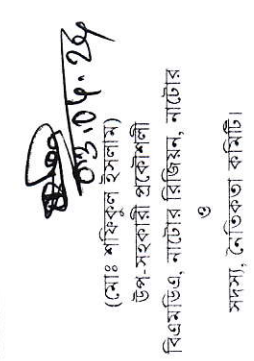 ০৩.০৮.২৫
(মোঃ শফিকুল ইসলাম)
উপ-সহকারী প্রকৌশলী
বিএমডিএ, নাটোর রিজিয়ন, নাটোর
ও
সদস্য, নৈতিকতা কমিটি।